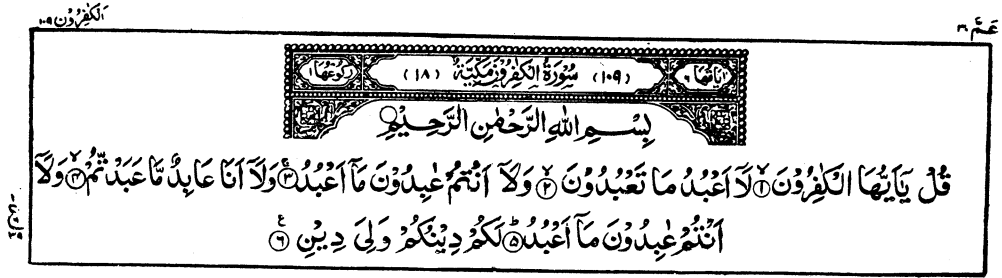 عَمَّ ۳۰
اَلْکٰفِرُوْن ۱۰۹
اٰیَاتُهَا ۶ (۱۰۹) سُوْرَةُ الْكٰفِرُوْنَ مَكِّيَّةٌ (۱۸) رُكُوْعُهَا ۱
بِسْمِ اللهِ الرَّحْمٰنِ الرَّحِيْمِ
قُلْ يٰۤاَيُّهَا الْكٰفِرُوْنَ ۙ﴿۱﴾ لَاۤ اَعْبُدُ مَا تَعْبُدُوْنَ ۙ﴿۲﴾ وَلَاۤ اَنْتُمْ عٰبِدُوْنَ مَاۤ اَعْبُدُ ۚ﴿۳﴾ وَلَاۤ اَنَا عَابِدٌ مَّا عَبَدْتُّمْ ۙ﴿۴﴾ وَلَاۤ
اَنْتُمْ عٰبِدُوْنَ مَاۤ اَعْبُدُ ؕ﴿۵﴾ لَكُمْ دِيْنُكُمْ وَلِيَ دِيْنِ ﴿۶﴾ ع